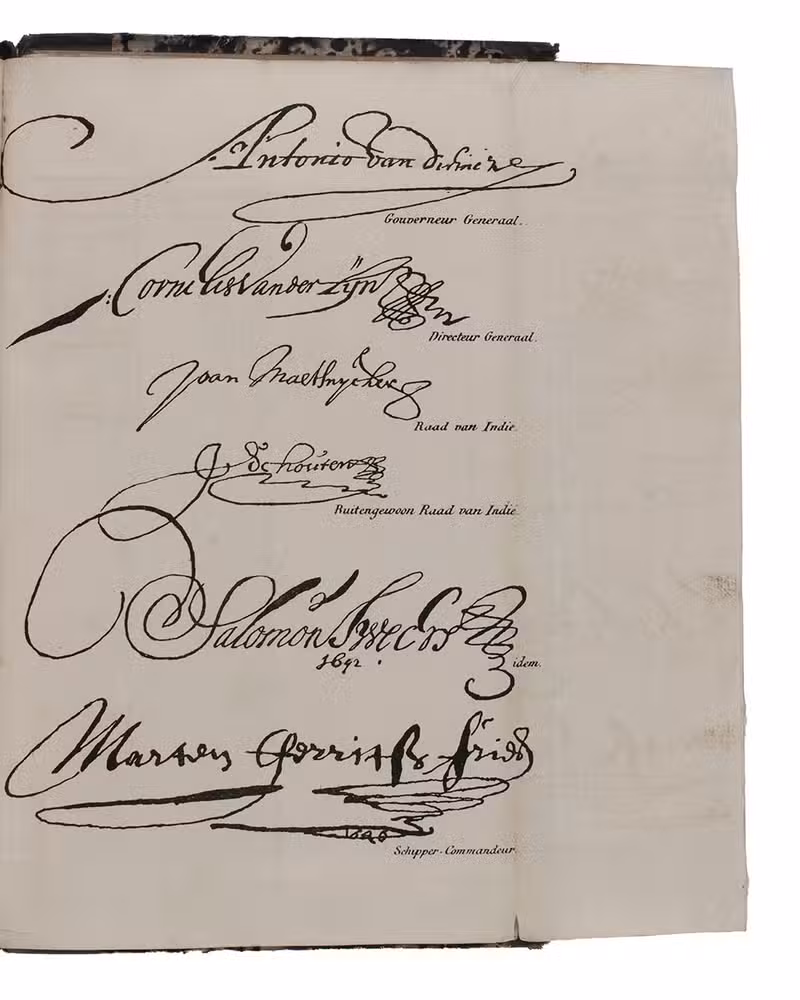 Antonio van Diemen
Gouverneur Generaal.
Cornelis Vander Lijn
Directeur Generaal.
Joan Maetsuycker
Raad van Indie.
J. Schouten
Buitengewoon Raad van Indie.
Salomon Sweers
1642.
idem.
Marten Gerritsz Fries
Schipper-Commandeur.